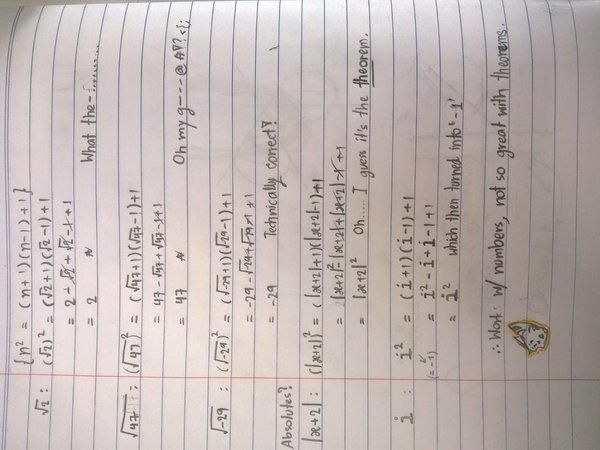 {n² = (n+1)(n-1)+1}
√2 : (√2)² = (√2+1)(√2-1)+1
= 2-√2+√2-1+1
= 2 What the-
√47 : (√47)² = (√47+1)(√47-1)+1
= 47-√47+√47-1+1
= 47 Oh my g---@#?!
√-29 : (√-29)² = (√-29+1)(√-29-1)+1
= -29-√-29+√-29-1+1
= -29 Technically correct?
Absolutes?
|x+2| : (|x+2|)² = (|x+2|+1)(|x+2|-1)+1
= |x+2|²-|x+2|+|x+2|-1+1
= |x+2|² Oh..... I guess it's the theorem.
i : i² = (i+1)(i-1)+1
(=-1) = i²-i+i-1+1
= i² which then turned into "-1"
∴ Work: w/ numbers, not so great with theorems.